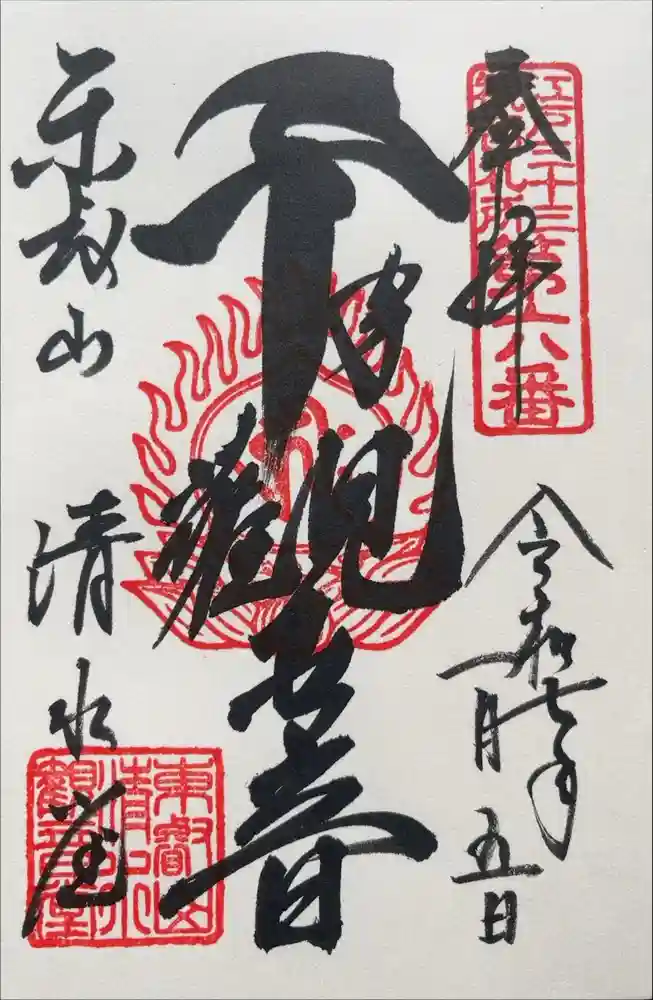 奉拝
江戸三十三
観音札所
第六番
令和七年
一月五日
千手觀世音
東叡山
清水堂
東叡山
清水
觀音堂